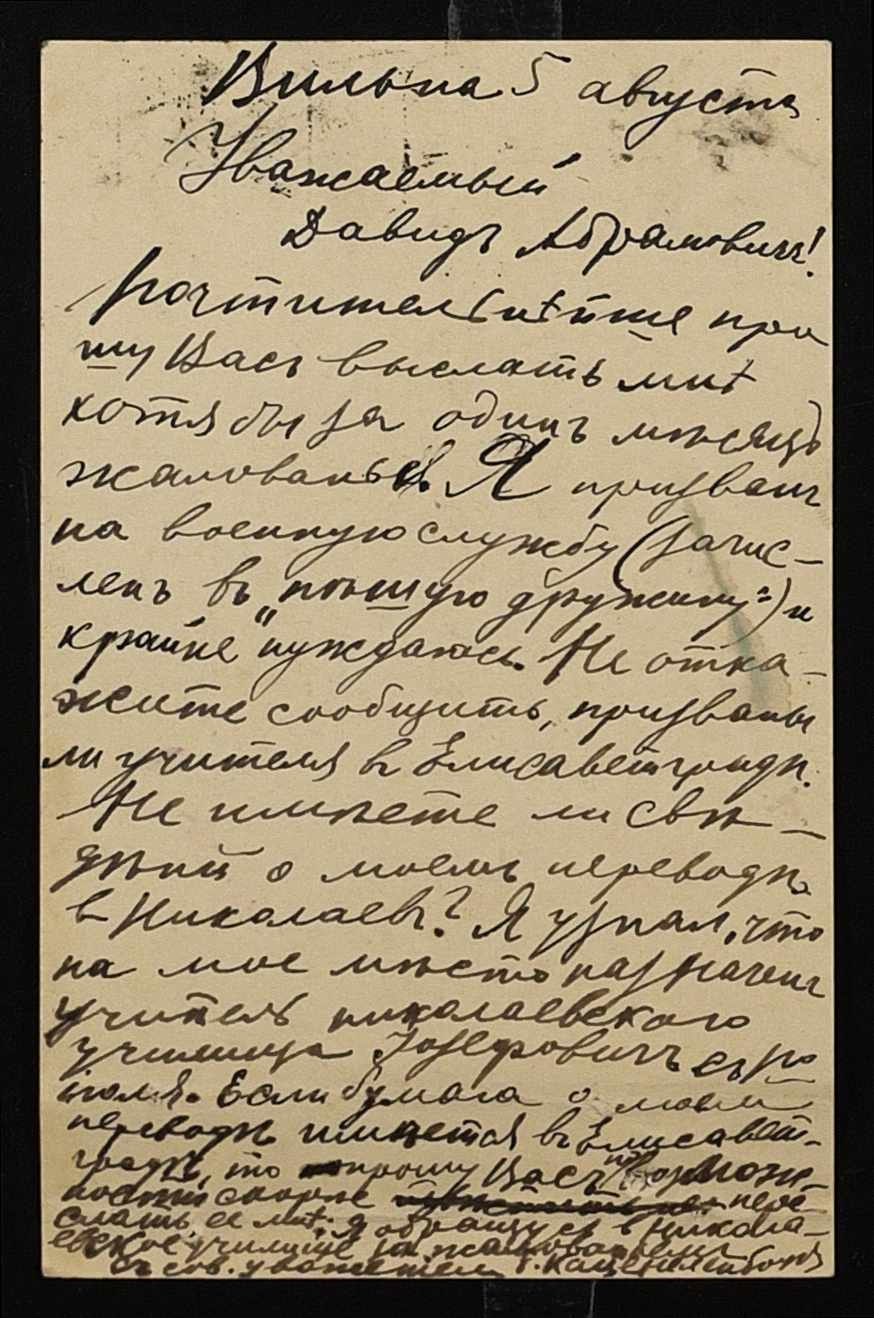 Вильна 5 августа
Уважаемый
Давидъ Абрамовичъ!
Почтительнѣйше про
шу Васъ выслать мнѣ
хотя бы за одинъ мѣсяцъ
жалованья. Я призванъ
на военную службу (зачис-
ленъ въ „пѣшую дружину“) и
крайне нуждаюсь. Не отка-
жите сообщить, призваны
ли учителя въ Елисаветградѣ.
Не имѣете ли свѣ-
дѣній о моемъ переводѣ
въ Николаевъ? Я узналъ, что
на мое мѣсто назначенъ
учитель николаевского
училища Іозефовичъ съ 1го
іюля. Если бумага о моемъ
переводѣ имѣется въ Елисавет-
градѣ, то прошу Васъ возмож-
ности скорѣе пере-
слать ее мнѣ. Я обращусь въ никола-
евское училище за жалованьемъ
Съ сов. уваженіемъ Г. Каценеленбогенъ